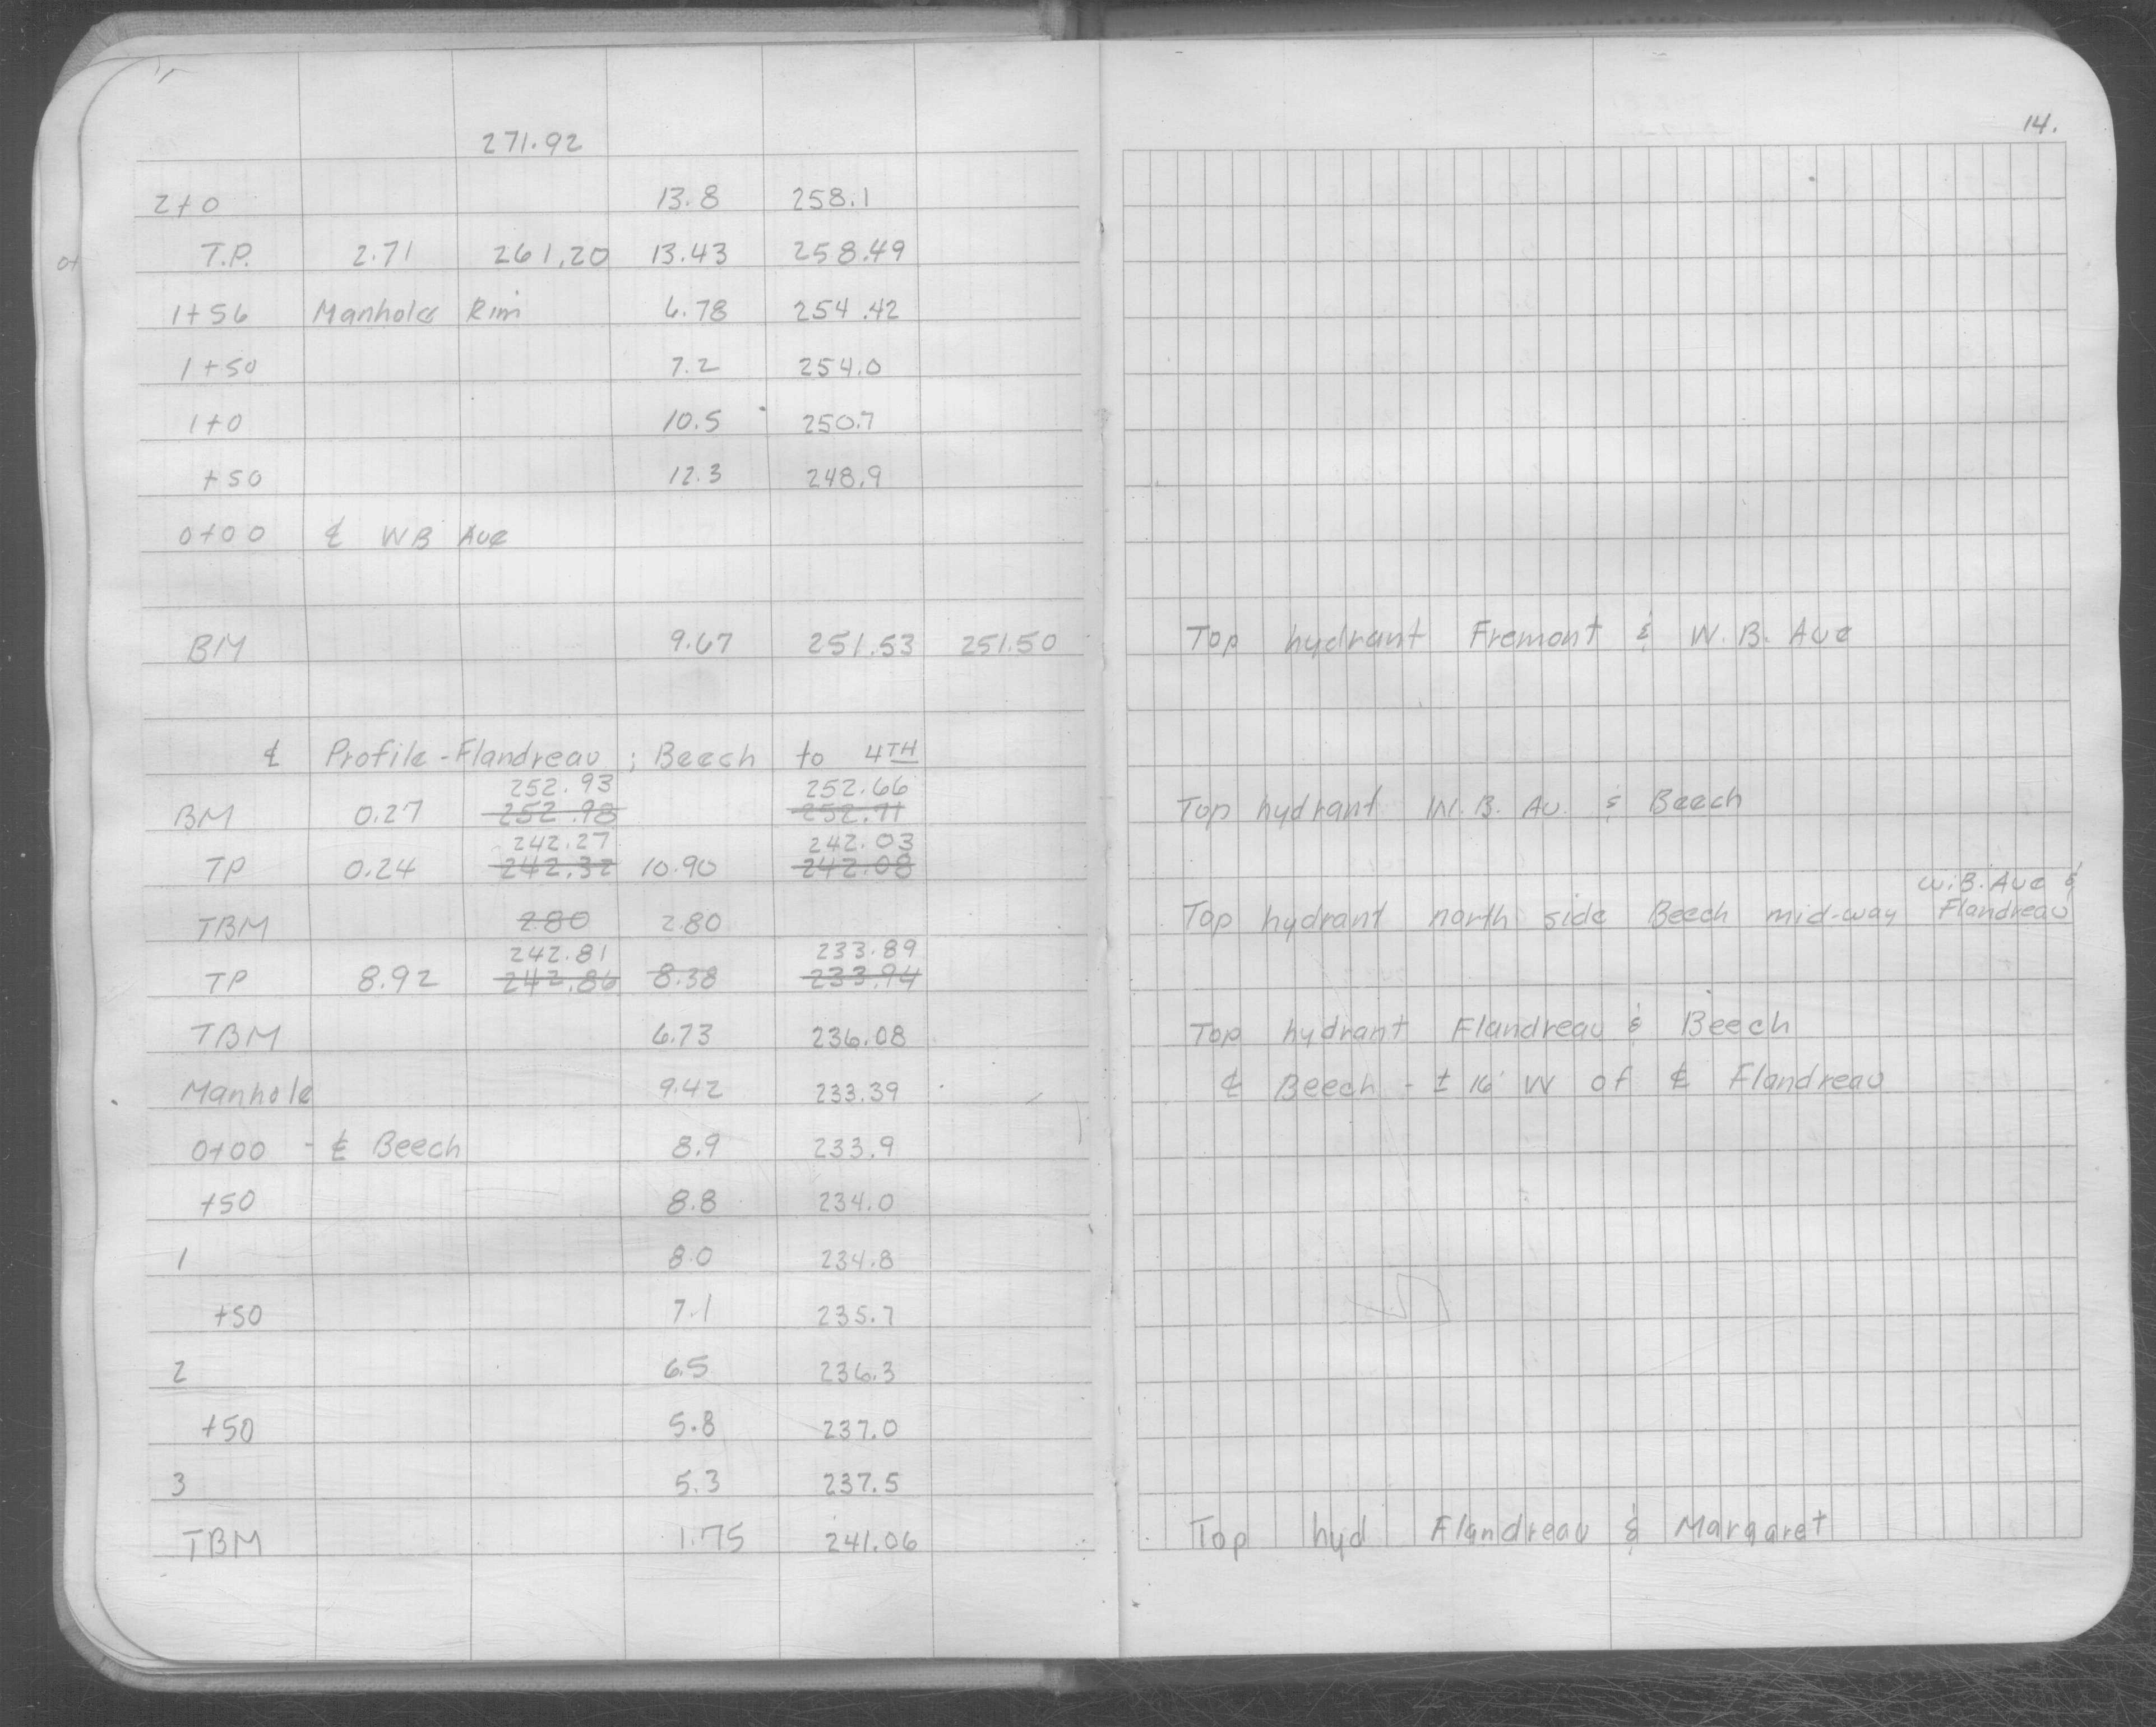 14.
271.92
2+0 13.8 258.1
T.P. 2.71 261.20 13.43 258.49
1+56 Manhole Rim 6.78 254.42
1+50 7.2 254.0
1+0 10.5 250.7
+50 12.3 248.9
0+00 ℄ WB Ave
BM 9.67 251.53 251.50 Top hydrant Fremont & W.B. Ave
℄ Profile - Flandreau ; Beech to 4TH
252.93 252.66
BM 0.27 252.98 252.71 Top hydrant W.B. Av. & Beech
242.27 242.03
TP 0.24 242.32 10.90 242.08
W.B. Ave &
TBM 2.80 2.80 Top hydrant north side Beech mid-way Flandreau
242.81 233.89
TP 8.92 242.86 8.38 233.94
TBM 6.73 236.08 Top hydrant Flandreau & Beech
Manhole 9.42 233.39 ℄ Beech - ± 16' W of ℄ Flandreau
0+00 - ℄ Beech 8.9 233.9
+50 8.8 234.0
1 8.0 234.8
+50 7.1 235.7
2 6.5 236.3
+50 5.8 237.0
3 5.3 237.5
TBM 1.75 241.06 Top hyd Flandreau & Margaret